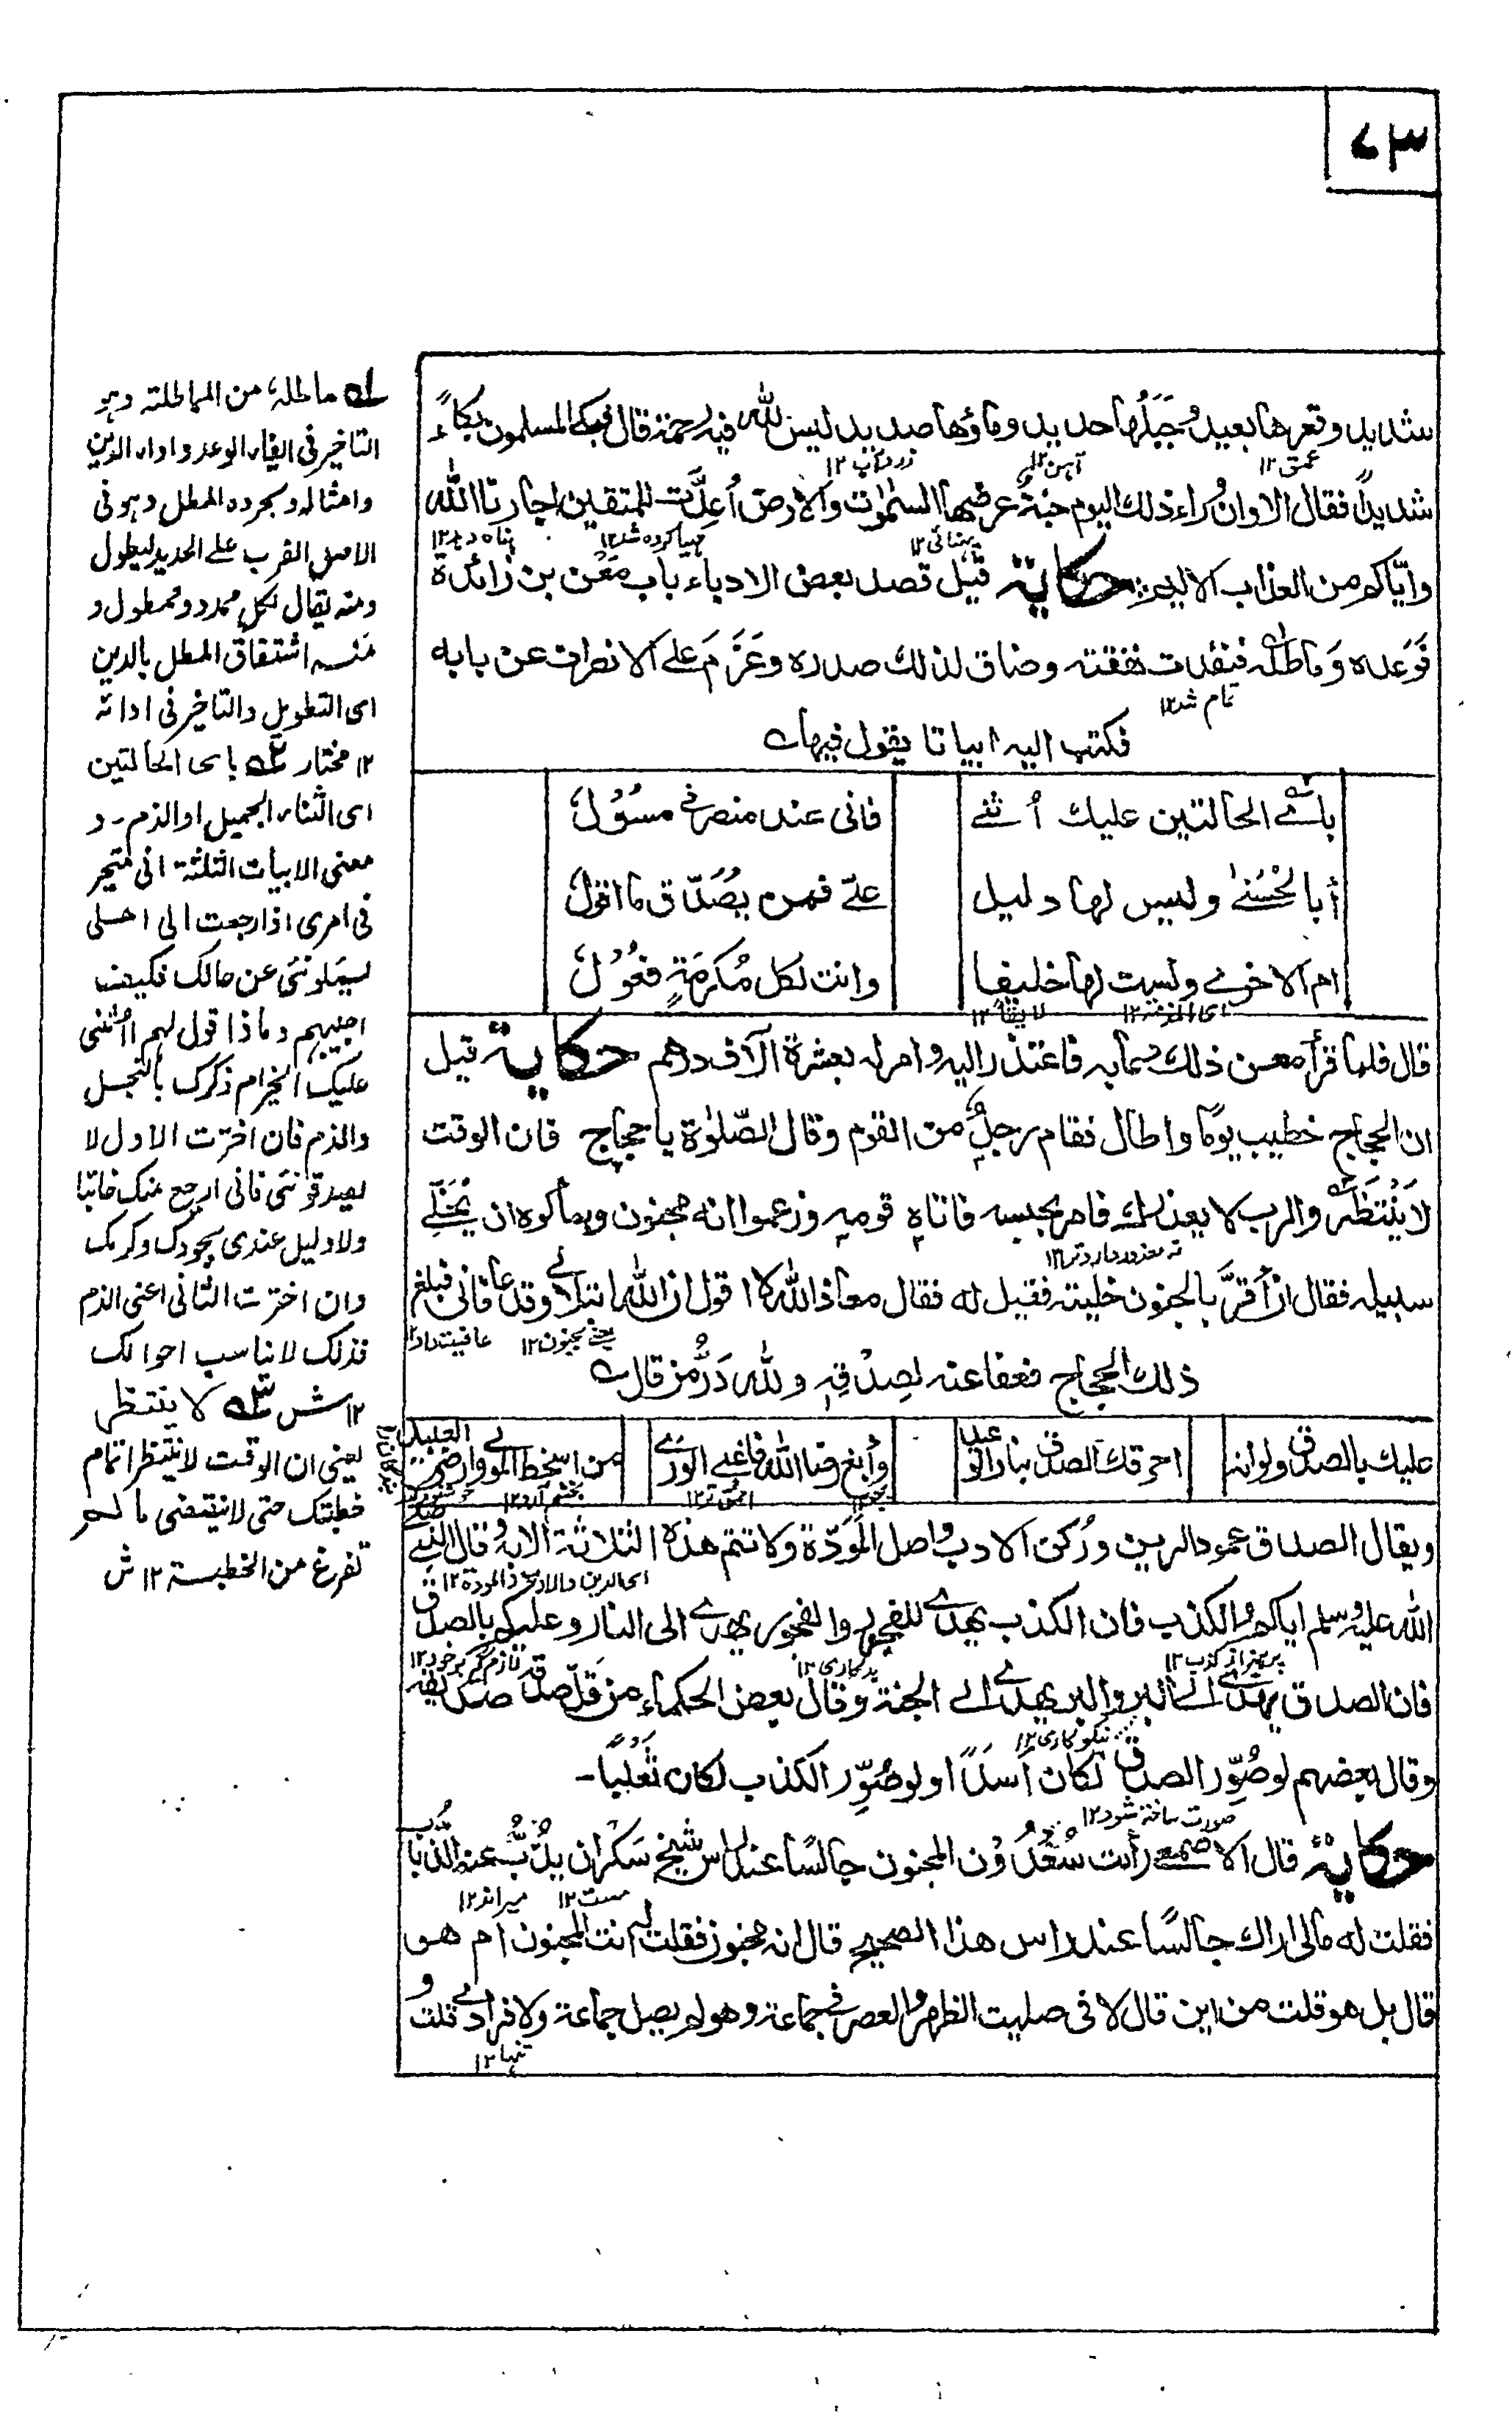 ٧٣
شديد وقعرها بعيد وجبلها حديد وماؤها صديد ليس لله فيه رحمة قال فبكى المسلمون بكاءً
عمق ١٢ آهن ١٢ زرداب ١٢
شديداً فقال الا وان وراء ذلك اليوم جنة عرضها السمٰوٰت والارض اُعدّت للمتقين اجارنا الله
پهنائى ١٢ مهيا كرده شد ١٢ پناه دهد ١٢
وايّاكم من العذاب الاليم حكاية قيل قصد بعض الادباء باب معن بن زائدة
فوعده وماطله فنفدت نفقته وضاق لذلك صدره وعزم على الانصراف عن بابه
تمام شد ١٢
فكتب اليه ابياتا يقول فيها
باى الحالتين عليك اُثنى فانى عند منصرفى مسئول
أبا لحسنىٰ وليس لها دليل علىّ فمن يصدّق ما اقول
ام الاخرى ولست لها خليقا وانت لكل مُكرمةٍ فعول
قال فلما قرأ معن ذلك فاعتذر اليه وامر له بعشرة آلاف درهم حكاية قيل
ان الحجاج خطب يومًا واطال فقام رجل من القوم وقال الصّلوٰة يا حجاج فان الوقت
لا ينتظر والرب لا يعذرك فامر بحبسه فاتاه قومه وزعموا انه مجنون وسألوه ان يخلّى
سبيله فقال ان أقرّ بالجنون خليته فقيل له فقال معاذ الله لا اقول ان الله ابتلانى وقد عافانى فبلغ
يعنى بجنون ١٢ عافيت داد ١٢
ذلك الحجاج فعفا عنه لصدقه ولله درّ من قال
عليك بالصدق ولوانه احرقك الصدق بنار الوعيد وأبغ رضا الله فاغبى الورى من اسخط المولى وارضى العبيد
ويقال الصدق عمود الدين وركن الادب واصل المودّة ولا تتم هذه الثلاثة الا به وقال النبى صلى
اى الدين والادب والمودة ١٢
الله عليه وسلم اياكم والكذب فان الكذب يهدى للفجور والفجور يهدى الى النار وعليكم بالصدق
پرهيزيد از كذب ١٢ بدكارى ١٢
فان الصدق يهدى الى البر والبر يهدى الى الجنة وقال بعض الحكماء من قلّ صدقه قلّ صديقه
نيكوكارى ١٢
وقال بعضهم لو صُوِّر الصدق لكان اَسداً ولو صُوِّر الكذب لكان ثعلبًا-
صورت ساخته شود ١٢
حكاية قال الاصمعى رأيت سُعْدُوْن المجنون جالسًا عند راس شيخ سكران يذبّ عنه الذباب
مست ١٢ ميراند ١٢
فقلت له مالى اراك جالسًا عند راس هذا الصحيح قال انه مجنون فقلت له أنت المجنون ام هو
قال بل هو قلت من اين قال لانى صليت الظهر والعصر فى جماعة وهو لم يصل جماعة ولا فرادىٰ قلت و
تنها ١٢
له ماطله، من المماطلة وہو
التاخير فى ايفاء الوعد واداء الدين
وامثاله ومجرده المطل وہو فى
الاصل الضرب على الحديد ليطول
ومنه يقال لكل ممدود ممطول و
منه اشتقاق المطل بالدين
اى التطويل والتاخير فى ادائه
١٢ مختار باى الحالتين
اى الثناء الجميل او الذم - و
معنى الابيات الثلثة انى متحير
فى امرى اذا رجعت الى اهلى
ليسئلوننى عن حالك فكيف
اجيبهم وماذا اقول لهم أاثنى
عليك الخير ام ذكرك بالبخل
والذم فان اخترت الاول لا
يصدقوننى فانى ارجع عنك خائبا
ولا دليل عندى بجودك وكرمك
وان اخترت الثانى اعنى الذم
فذلك لا يناسب احوالك
١٢ ش لا ينتظر
يعنى ان الوقت لا ينتظر اتمام
خطبتك حتى لا ينقضى مالم
تفرغ من الخطبة ١٢ ش